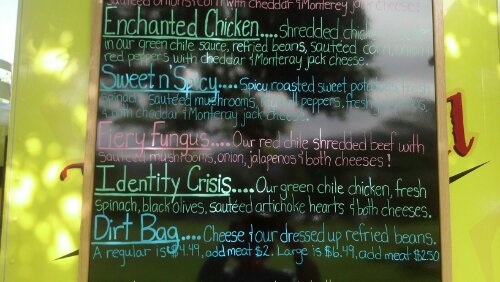 sauteed onions & corn with cheddar & Monterey jack cheese.
Enchanted Chicken.... shredded chicken
in our green chile sauce, refried beans, sauteed corn, onion
red peppers with cheddar & Monteray jack cheese.
Sweet n' Spicy.... Spicy roasted sweet potatoes, fresh
spinach, sauteed mushrooms, peppers, fresh
& both cheddar & Monteray jack cheese.
Fiery Fungus.... Our red chile shredded beef with
sauteed mushrooms, onion, jalapenos & both cheeses!
Identity Crisis.... Our green chile chicken, fresh
spinach, black olives, sauteed artichoke hearts & both cheeses.
Dirt Bag.... Cheese & our dressed up refried beans.
A regular is $4.49, add meat $2. Large is $6.49, add meat $2.50